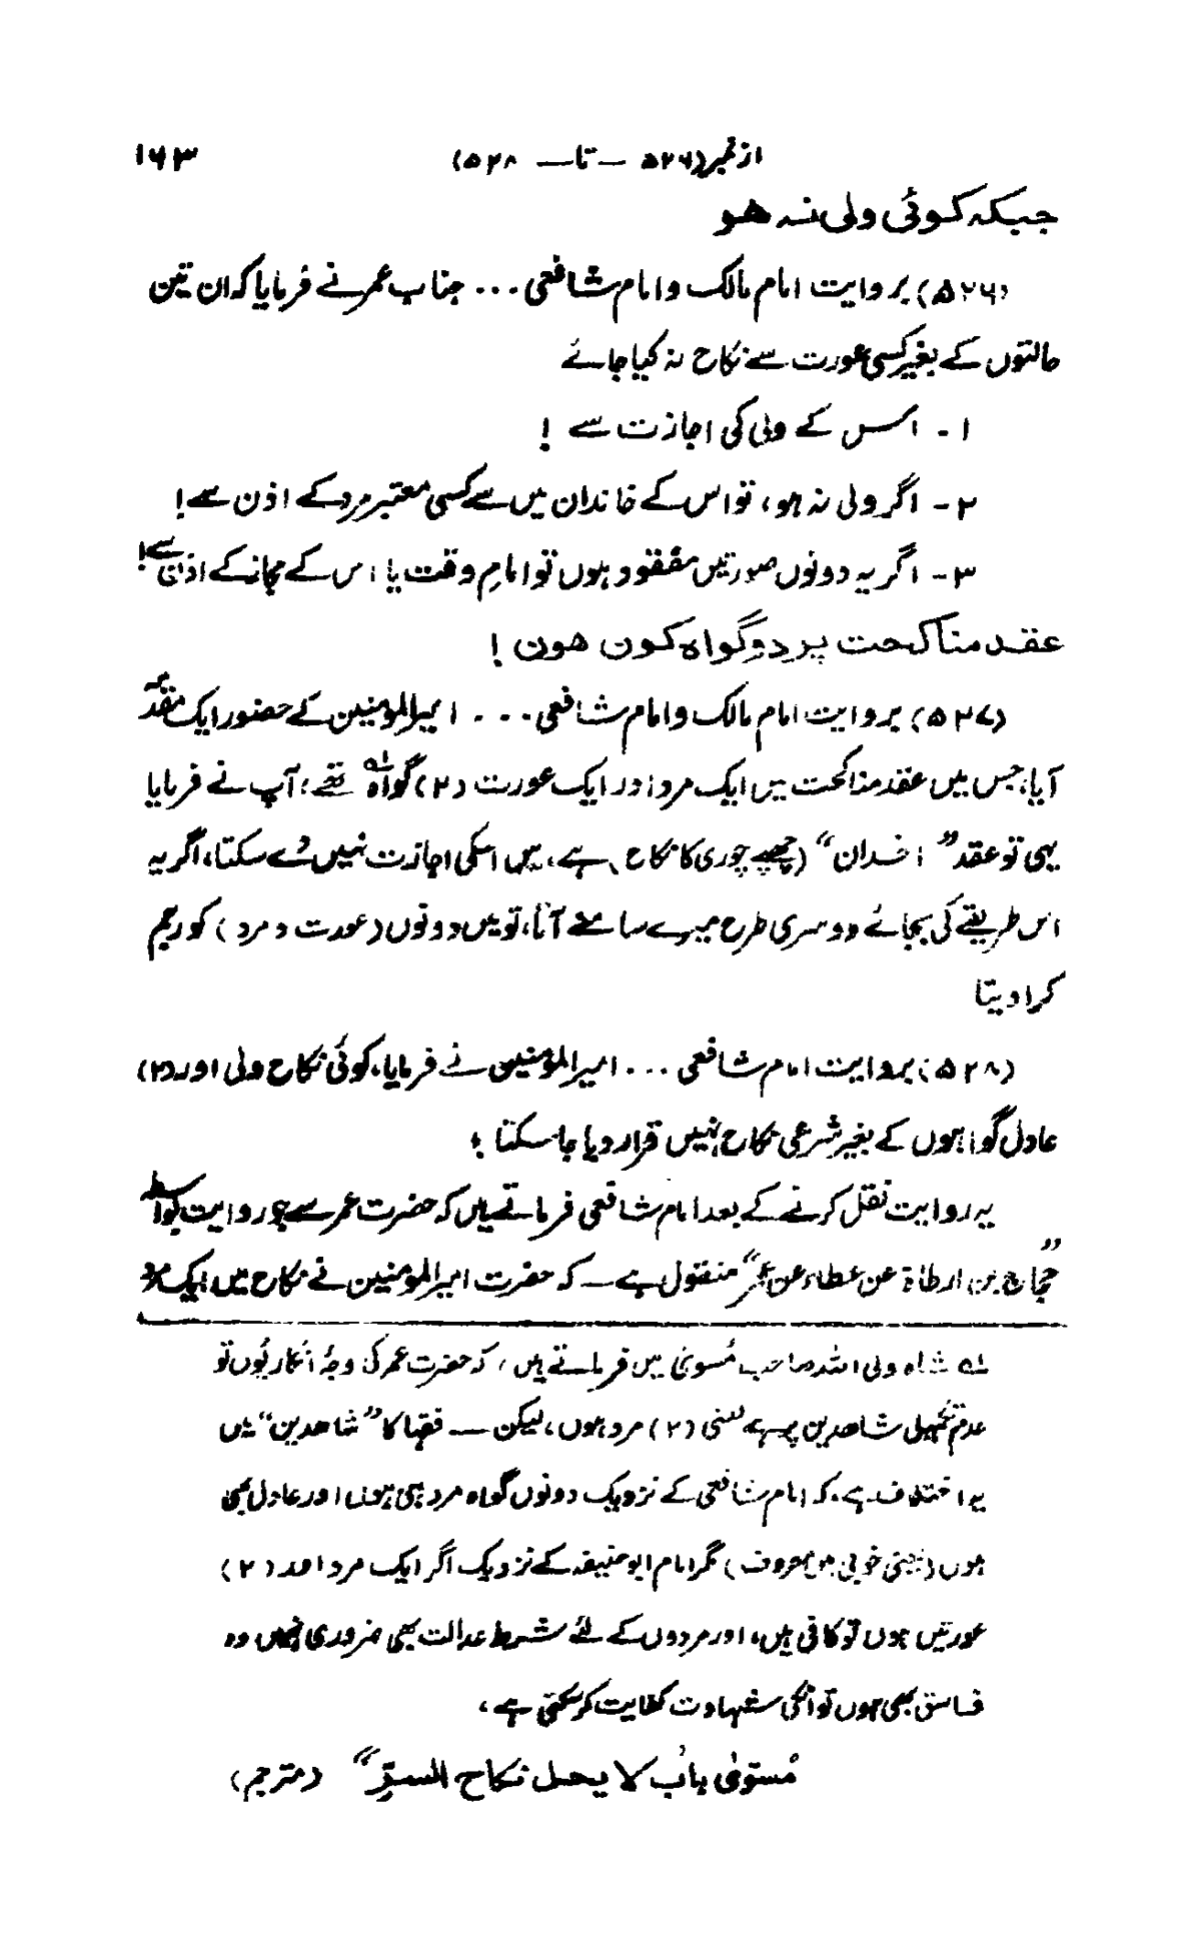 از نمبر (۵۲۶ — تا — ۵۲۸) ۱۶۳
جبکہ کوئی ولی نہ ھو
(۵۲۶) بروایت امام مالک و امام شافعی ... جناب عمر نے فرمایا کہ ان تین
حالتوں کے بغیر کسی عورت سے نکاح نہ کیا جائے
۱ - اس کے ولی کی اجازت سے !
۲ - اگر ولی نہ ہو، تو اس کے خاندان میں سے کسی معتبر مرد کے اذن سے !
۳ - اگر یہ دونوں صورتیں مفقود ہوں تو امامِ وقت یا اس کے مجاز کے اذن سے !
عقد مناکحت پر دو گواہ کون ھوں !
(۵۲۷) بروایت امام مالک و امام شافعی ... امیرالمؤمنین کے حضور ایک مقدمہ
آیا، جس میں عقد مناکحت میں ایک مرد اور ایک عورت (۲) گواہ لہ تھے، آپ نے فرمایا
یہی تو عقد ”اخدان“ (چھپے چوری کا نکاح) ہے، میں اسکی اجازت نہیں دے سکتا، اگر یہ
اس طریقے کی بجائے دوسری طرح میرے سامنے آتا، تو میں دونوں (عورت و مرد) کو رجم
کرا دیتا
(۵۲۸) بروایت امام شافعی ... امیرالمؤمنین نے فرمایا، کوئی نکاح ولی اور (۲)
عادل گواہوں کے بغیر شرعی نکاح نہیں قرار دیا جا سکتا ؛
یہ روایت نقل کرنے کے بعد امام شافعی فرماتے ہیں کہ حضرت عمر سے جو روایت بواسطہ
”حجاج بن ارطاۃ عن عطاء عن عمر“ منقول ہے — کہ حضرت امیرالمؤمنین نے نکاح میں ایک مرد
لہ شاہ ولی اللہ صاحب مُسویٰ میں فرماتے ہیں، کہ حضرت عمر کی وجہُ انکار یوں تو
عدم تکمیل شاھدین پر ہے یعنی (۲) مرد ہوں، لیکن — فقہا کا ”شاھدین“ میں
یہ اختلاف ہے، کہ امام شافعی کے نزدیک دونوں گواہ مرد ہی ہوں اور عادل بھی
ہوں (یعنی خوبی میں معروف) مگر امام ابو حنیفہ کے نزدیک اگر ایک مرد اور (۲)
عورتیں ہوں تو کافی ہیں، اور مردوں کے لئے شرط عدالت بھی ضروری نہیں وہ
فاسق بھی ہوں تو انکی شہادت کفایت کر سکتی ہے،
مُسوّیٰ باب لا یحل نکاح السرّ“ (مترجم)